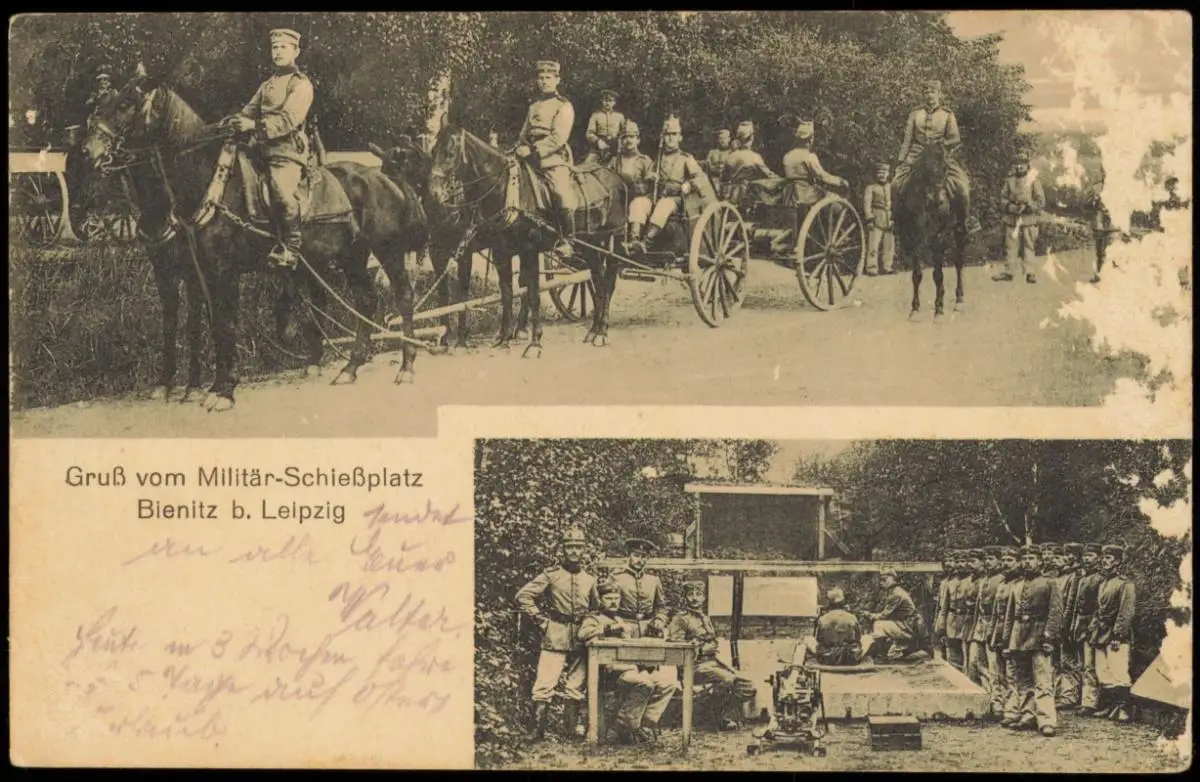 Gruß vom Militär-Schießplatz
Bienitz b. Leipzig
sendet
an alle Euer
Walter.
Heute in 3 Wochen fahre
5 Tage auf Oster
Urlaub